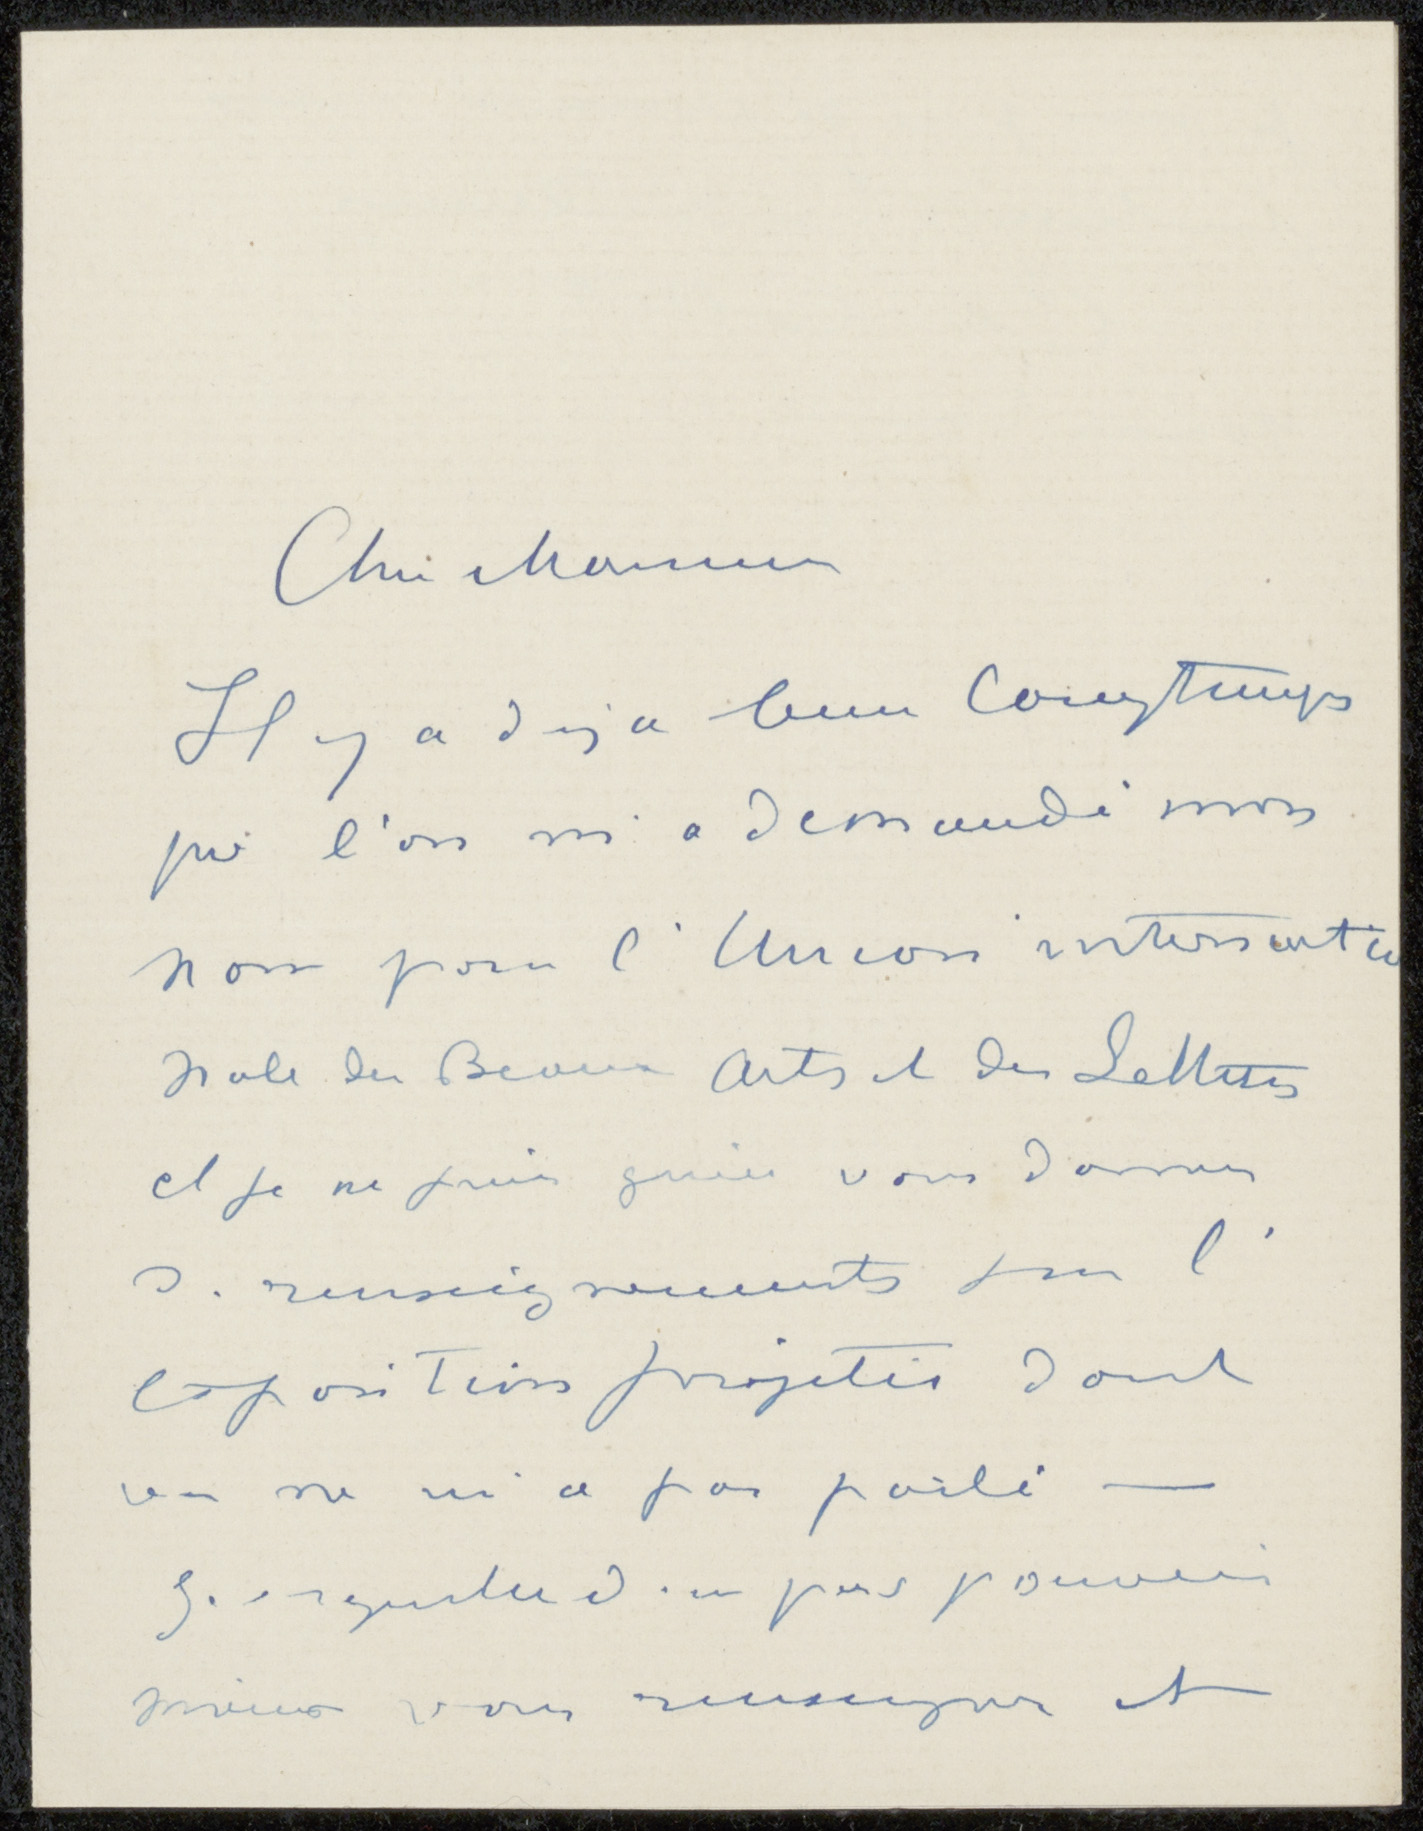 Cher Monsieur
Il y a déjà bien longtemps
que l'on m'a demandé mon
nom pour l'Union internatio
nale des Beaux Arts et des Lettres
et je ne puis guère vous donner
de renseignements sur l'
exposition projetée dont
on ne m'a pas parlé —
Je regrette de ne pas pouvoir
mieux vous renseigner et